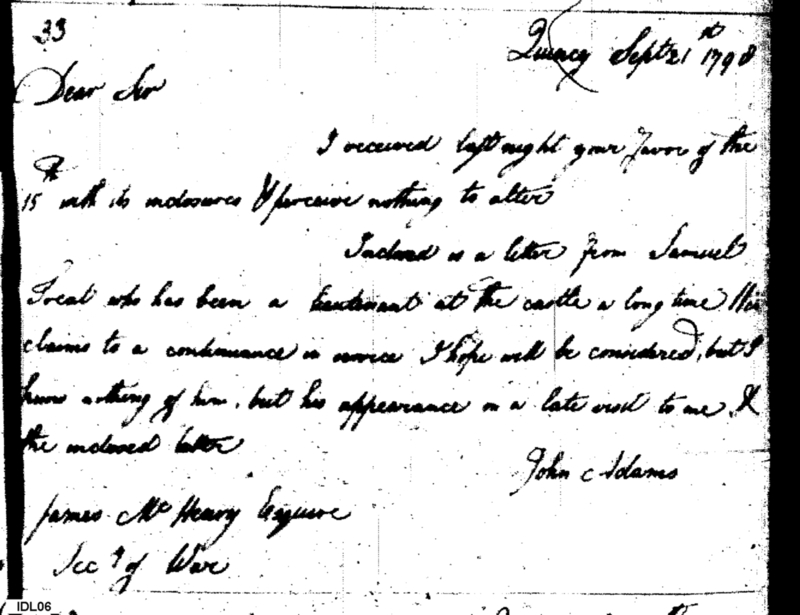 33
Quincy Sept 21st 1798
Dear Sir
I received last night your favor of the
15th with its inclosures & perceive nothing to alter
Inclosed is a letter from Samuel
Treat who has been a lieutenant at the castle a long time. His
claims to a continuance in service I hope will be considered, but I
know nothing of him, but his appearance on a late visit to me, &
the inclosed letter
John Adams
James McHenry Esquire
Secy of War
IDL06